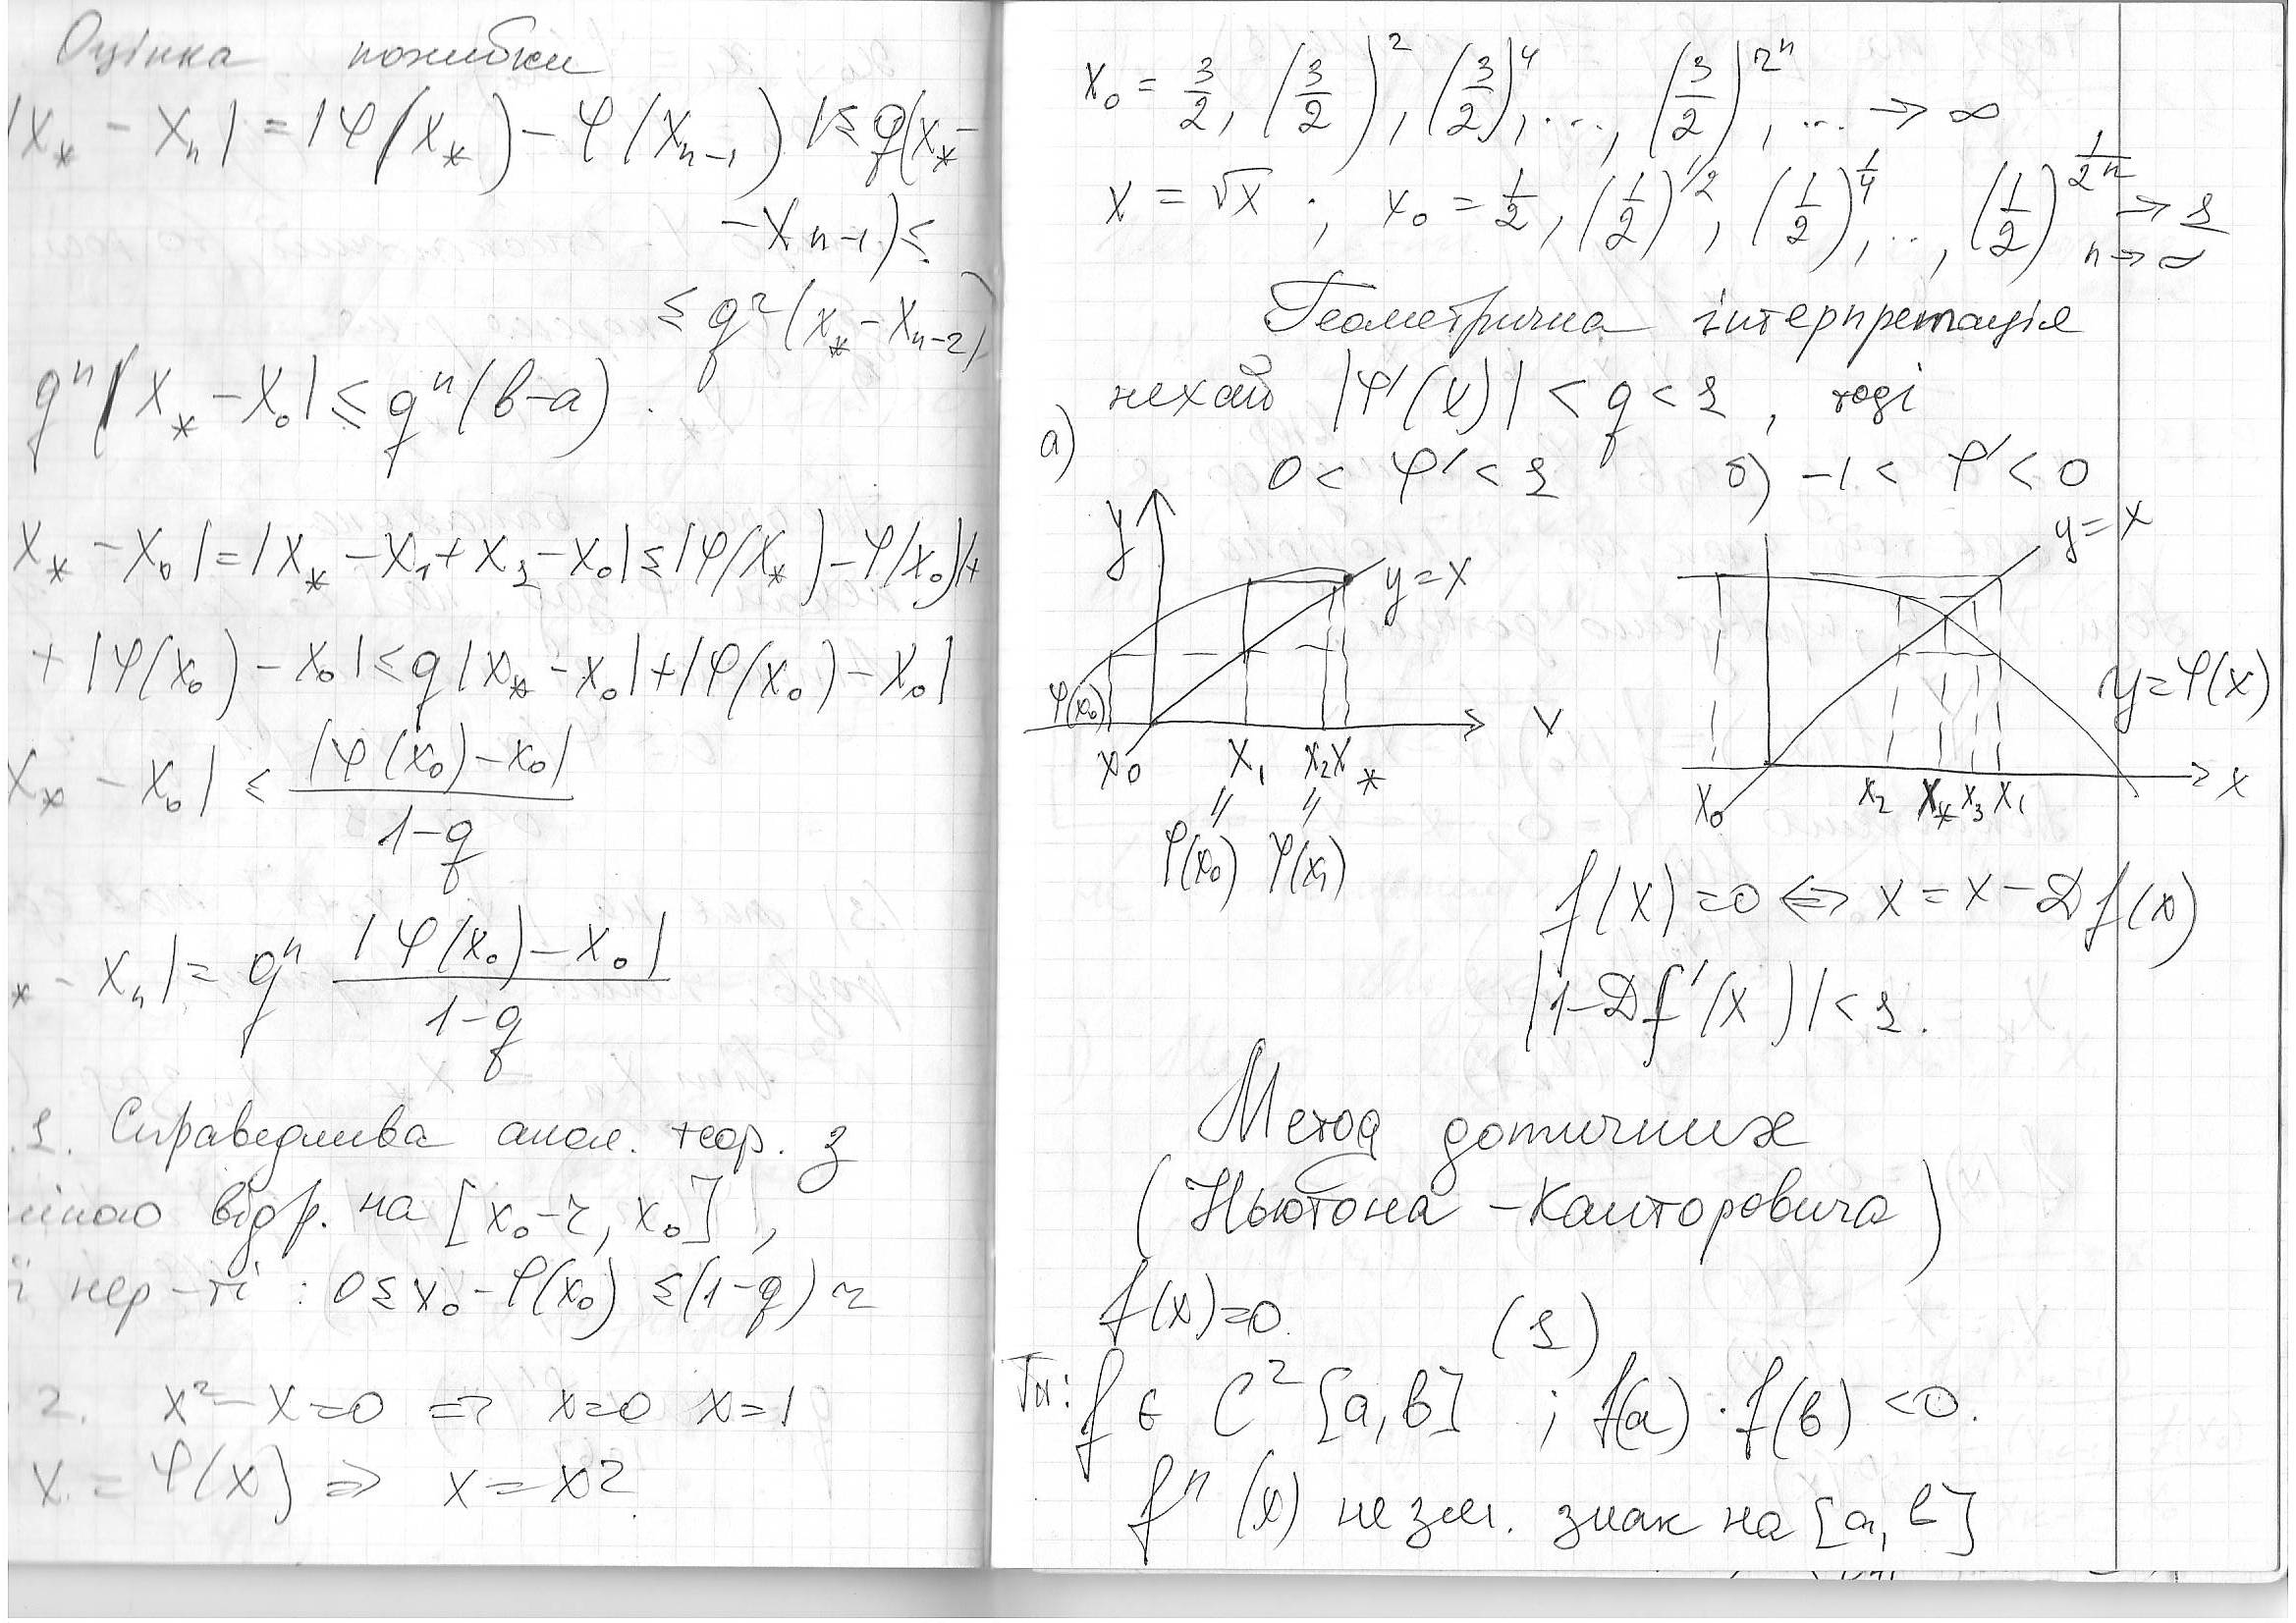 Оцінка похибки
|x_* - x_n| = |φ(x_*) - φ(x_{n-1})| ≤ q(x_* -
- x_{n-1}) ≤
≤ q²(x_* - x_{n-2})
q^n |x_* - x_0| ≤ q^n (b-a).
x_* - x_0| = |x_* - x_1 + x_1 - x_0| ≤ |φ(x_*) - φ(x_0)| +
+ |φ(x_0) - x_0| ≤ q|x_* - x_0| + |φ(x_0) - x_0|
x_* - x_0| ≤ |φ(x_0) - x_0| / (1-q)
* - x_n| = q^n |φ(x_0) - x_0| / (1-q)
1. Справедлива анал. теор. з
відр. на [x_0 - r, x_0],
ї нер-ті : 0 ≤ x_0 - φ(x_0) ≤ (1-q) r
2. x² - x = 0 ⇒ x=0 x=1
x = φ(x) ⇒ x = x².
x_0 = 3/2, (3/2)^2, (3/2)^4, ..., (3/2)^{2^n}, ... → ∞
x = √x ; x_0 = 1/2, (1/2)^{1/2}, (1/2)^{1/4}, .., (1/2)^{1/2^n} → 1
n → ∞
Геометрична інтерпретація
нехай |φ'(x)| < q < 1, тоді
а) 0 < φ' < 1 б) -1 < φ' < 0
y y=x y=x
φ(x_0) x y=φ(x)
x_0 x_1 x_2 x_* x_0 x_2 x_* x_3 x_1 x
= =
φ(x_0) φ(x_1)
f(x)=0 ⇔ x = x - D f(x)
|1 - D f'(x)| < 1.
Метод дотичних
(Ньютона - Канторовича)
f(x)=0. (1)
Тн: f ∈ C² [a, b] ; f(a) · f(b) < 0.
f''(x) не зм. знак на [a, b]